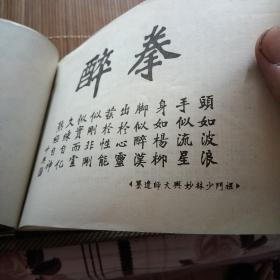 醉拳
頭如波浪
手似流星
身如楊柳
脚似醉漢
出於心靈
發於性能
似剛非剛
似實而虛
久練自化
熟極自神
禪門少林妙興大師遺墨